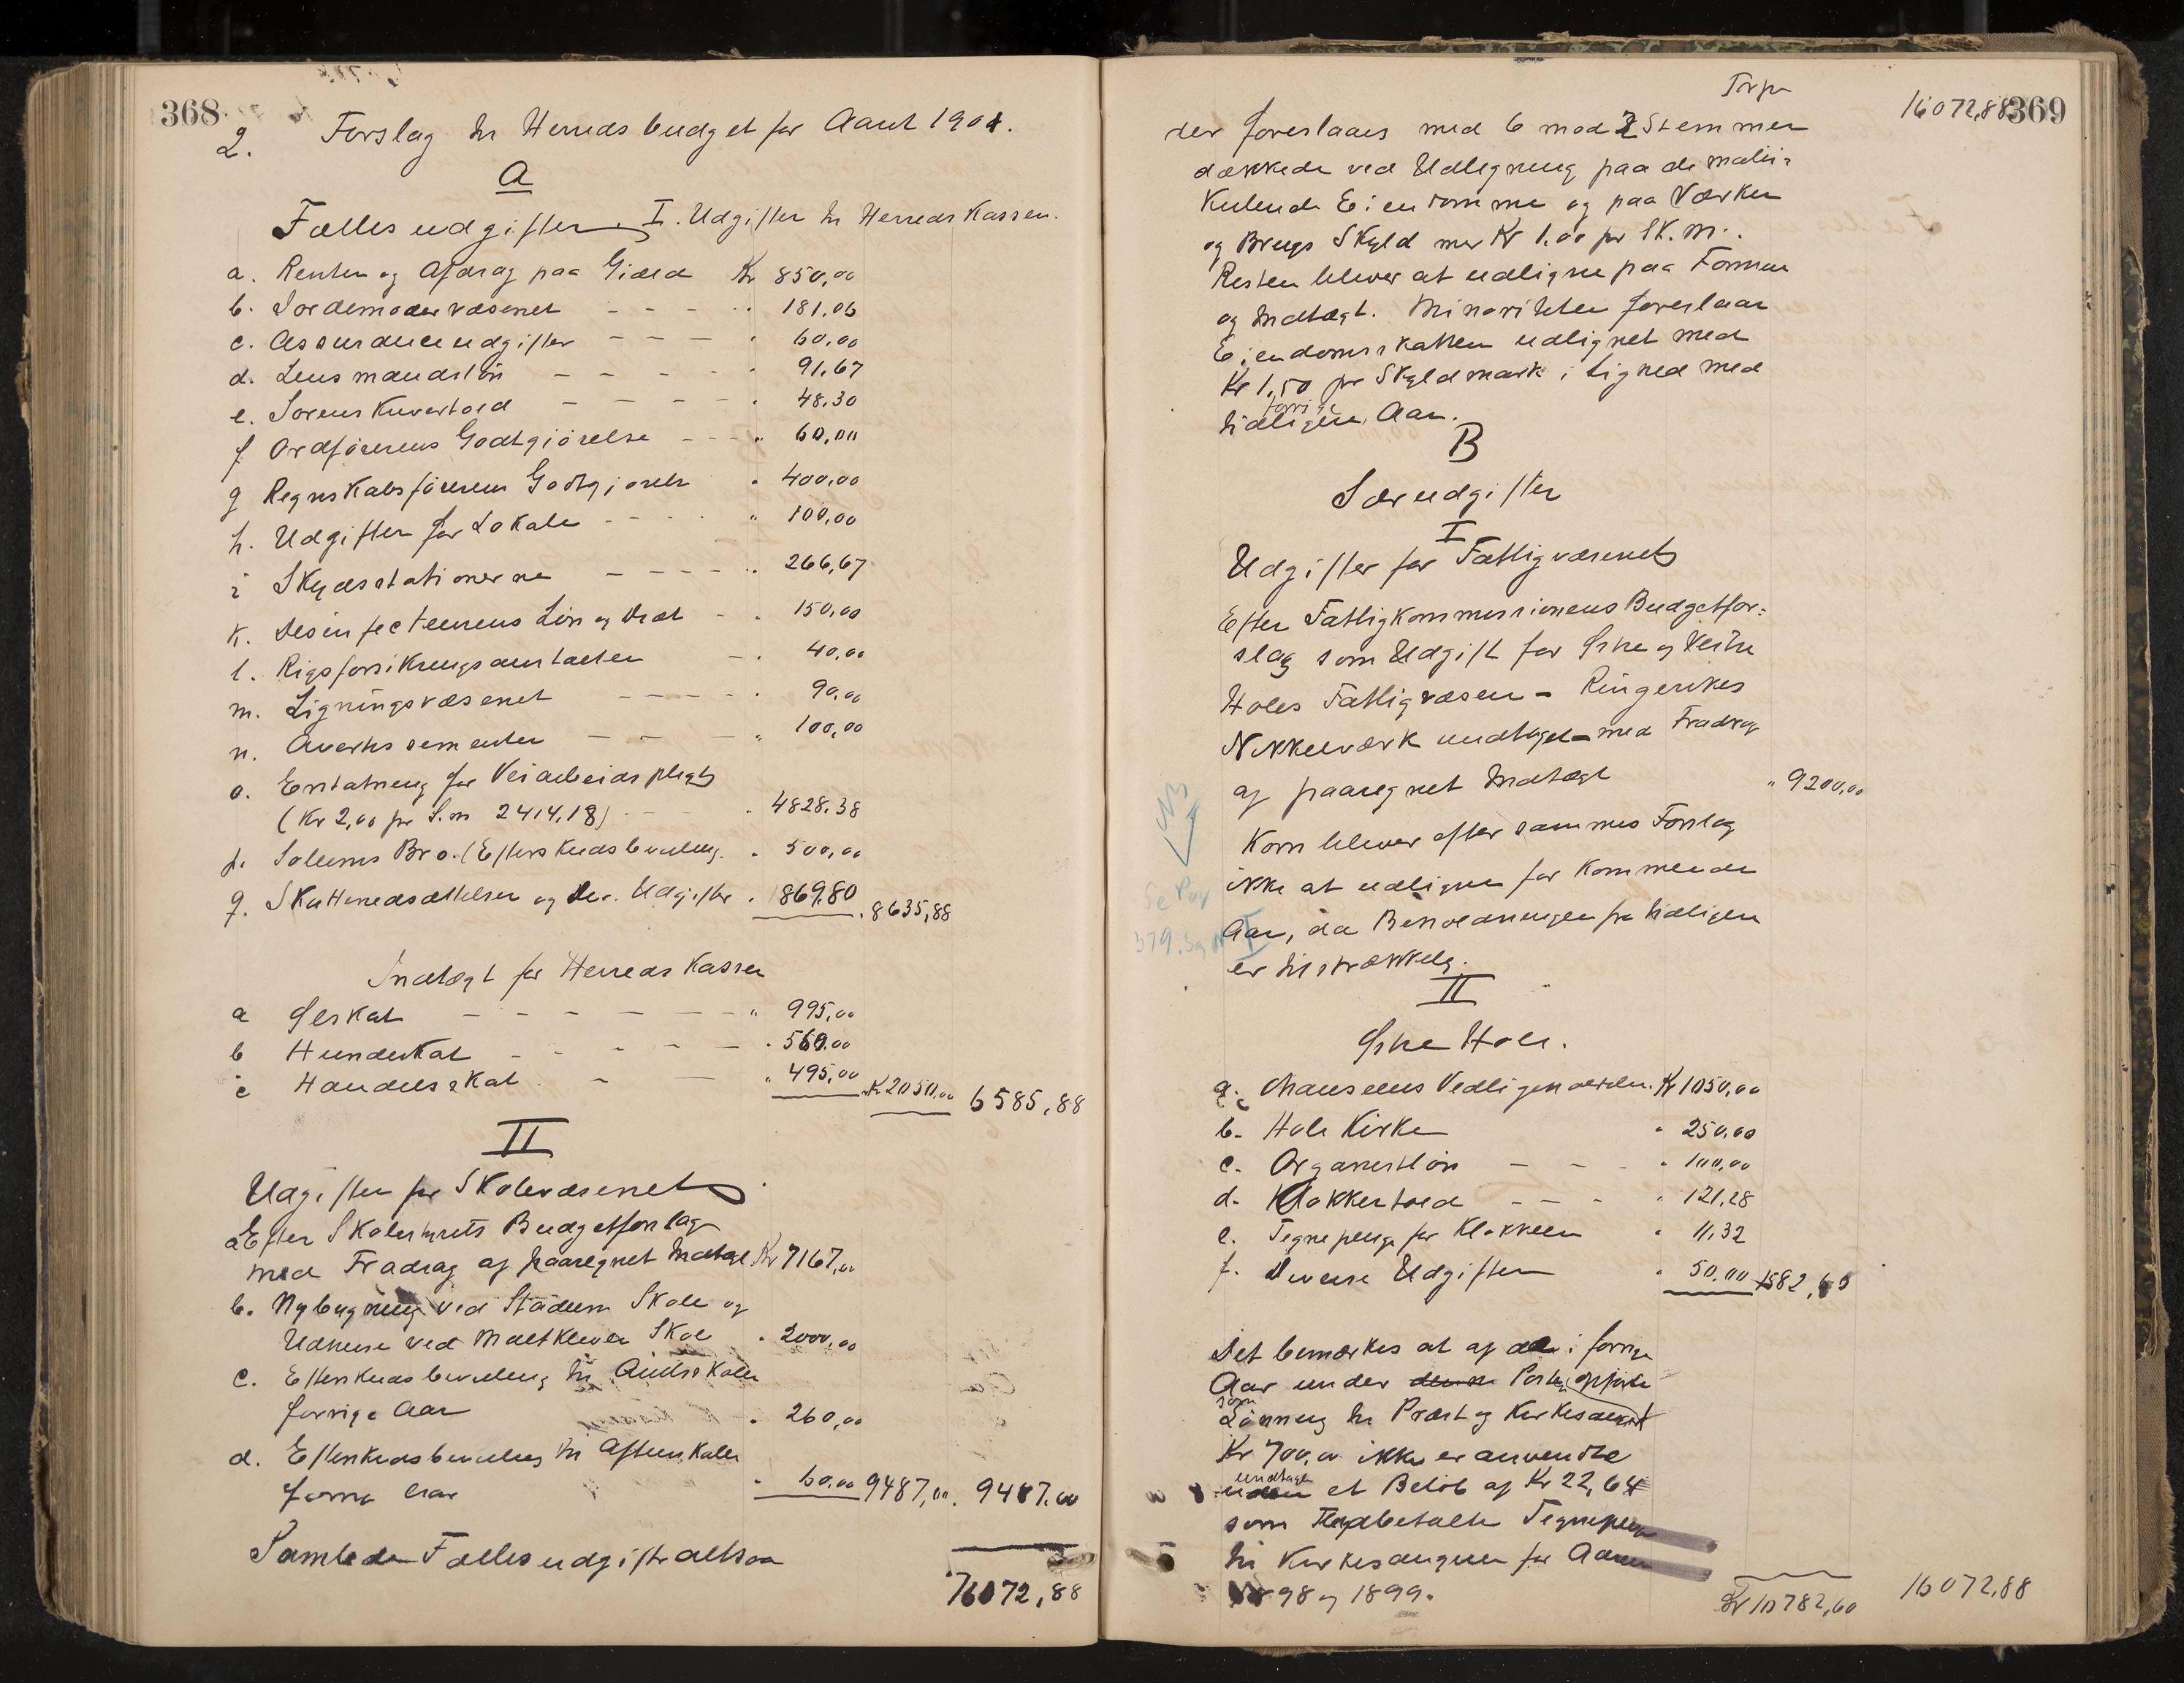 368
2. Forslag til Herredsbudget for Aaret 1901.
A
Fællesudgifter. I. Udgifter til Herredskassen.
a. Renter og Afdrag paa Gjæld Kr 850,00
b. Jordemodervæsenet - - - " 181.06
c. Assuranceudgifter - - - " 60,00
d. Lensmandsløn - - - - " 91,67
e. Sorenskrivertold - - - - " 48.30
f Ordførerens Godtgjørelse - - - " 60,00
g Regnskabsførerens Godtgjørelse " 400,00
h. Udgifter for Lokale - - - " 100,00
i Skydsstationerne - - - - " 266,67
k. Desinfecteurens Løn og Diæt - " 150,00
l. Rigsforsikringsanstalten - " 40,00
m. Ligningsvæsenet - - - - " 90,00
n. Avertissementer - - - " 100,00
o. Erstatning for Veiarbeidspligt
(Kr 2,00 pr S.m 2414,18) - - " 4828.38
p. Solums Bro. (Efterskudsbevilling. " 500,00
q. Skattenedsættelser og Div. Udgifter " 869,80 " 8635,88
Indtægt for Herredskassen
a Ølskat - - - - - - - " 995,00
b Hundeskat - - - - - " 560.00
c Handelsskat - - " 495,00 Kr 2050,00 6585,88
II
Udgifter for Skolevæsenet
a Efter Skolestyrets Budgetforslag
med Fradrag af paaregnet Indtægt Kr 7167,00
b. Nybygning ved Stadum Skole og
Udhuse ved Maltkleven Skole " 2000,00
c. Efterskudsbevilling til Amtsskolen
forrige Aar " 260,00
d. Efterskudsbevilling til Aftenskoler
forrige Aar " 60,00 9487,00. 9487.00
Samlede Fællesudgifter altsaa
16072,88
369
Trsp 16072,88
der foreslaaes med 6 mod 2 Stemmer
dækkede ved Udligning paa de matri-
kulerede Eiendomme og paa Værker
og Brugs Skyld med Kr 1.00 pr Sk.M..
Resten bliver at udligne paa Formue
og Indtægt. Minoriteten foreslaar
Eiendomsskatten udlignet med
Kr 1,50 pr Skyldmark i Lighed med
forrige
tidligere Aar.
B
Særudgifter
I
Udgifter for Fattigvæsenet
Efter Fattigkommissionens Budgetfor-
slag som Udgift for Østre og Vestre
Holes Fattigvæsen - Ringerikes
Nikkelværk undtaget - med Fradrag
af paaregnet Indtægt " 9200,00
Korn bliver efter sammes Forslag
ikke at udligne for kommende
Aar, da Beholdningen fra tidligere
er tilstrækkelig.
NB
Se Pag
379. Sag
II
Østre Hole.
a. Chausseens Vedligeholdelse. Kr 1050,00
b. Hole Kirke " 250,00
c. Organistløn - - - " 100,00
d. Klokkertold - - - " 121,28
e. Tegnepenge for Klokkeren " 11,32
f. Diverse Udgifter " 50,00 1582,60
Det bemærkes at af de i forrige
Aar under denne Post opførte
som
Lønning til Præst og Kirkesanger
Kr 700,00 ikke er anvendte
undtagen
uden et Beløb af Kr 22,64
som Udbetalte Tegnepenge
til Kirkesangeren for Aarene
1898 og 1899.
Kr 10782,60 16072,88